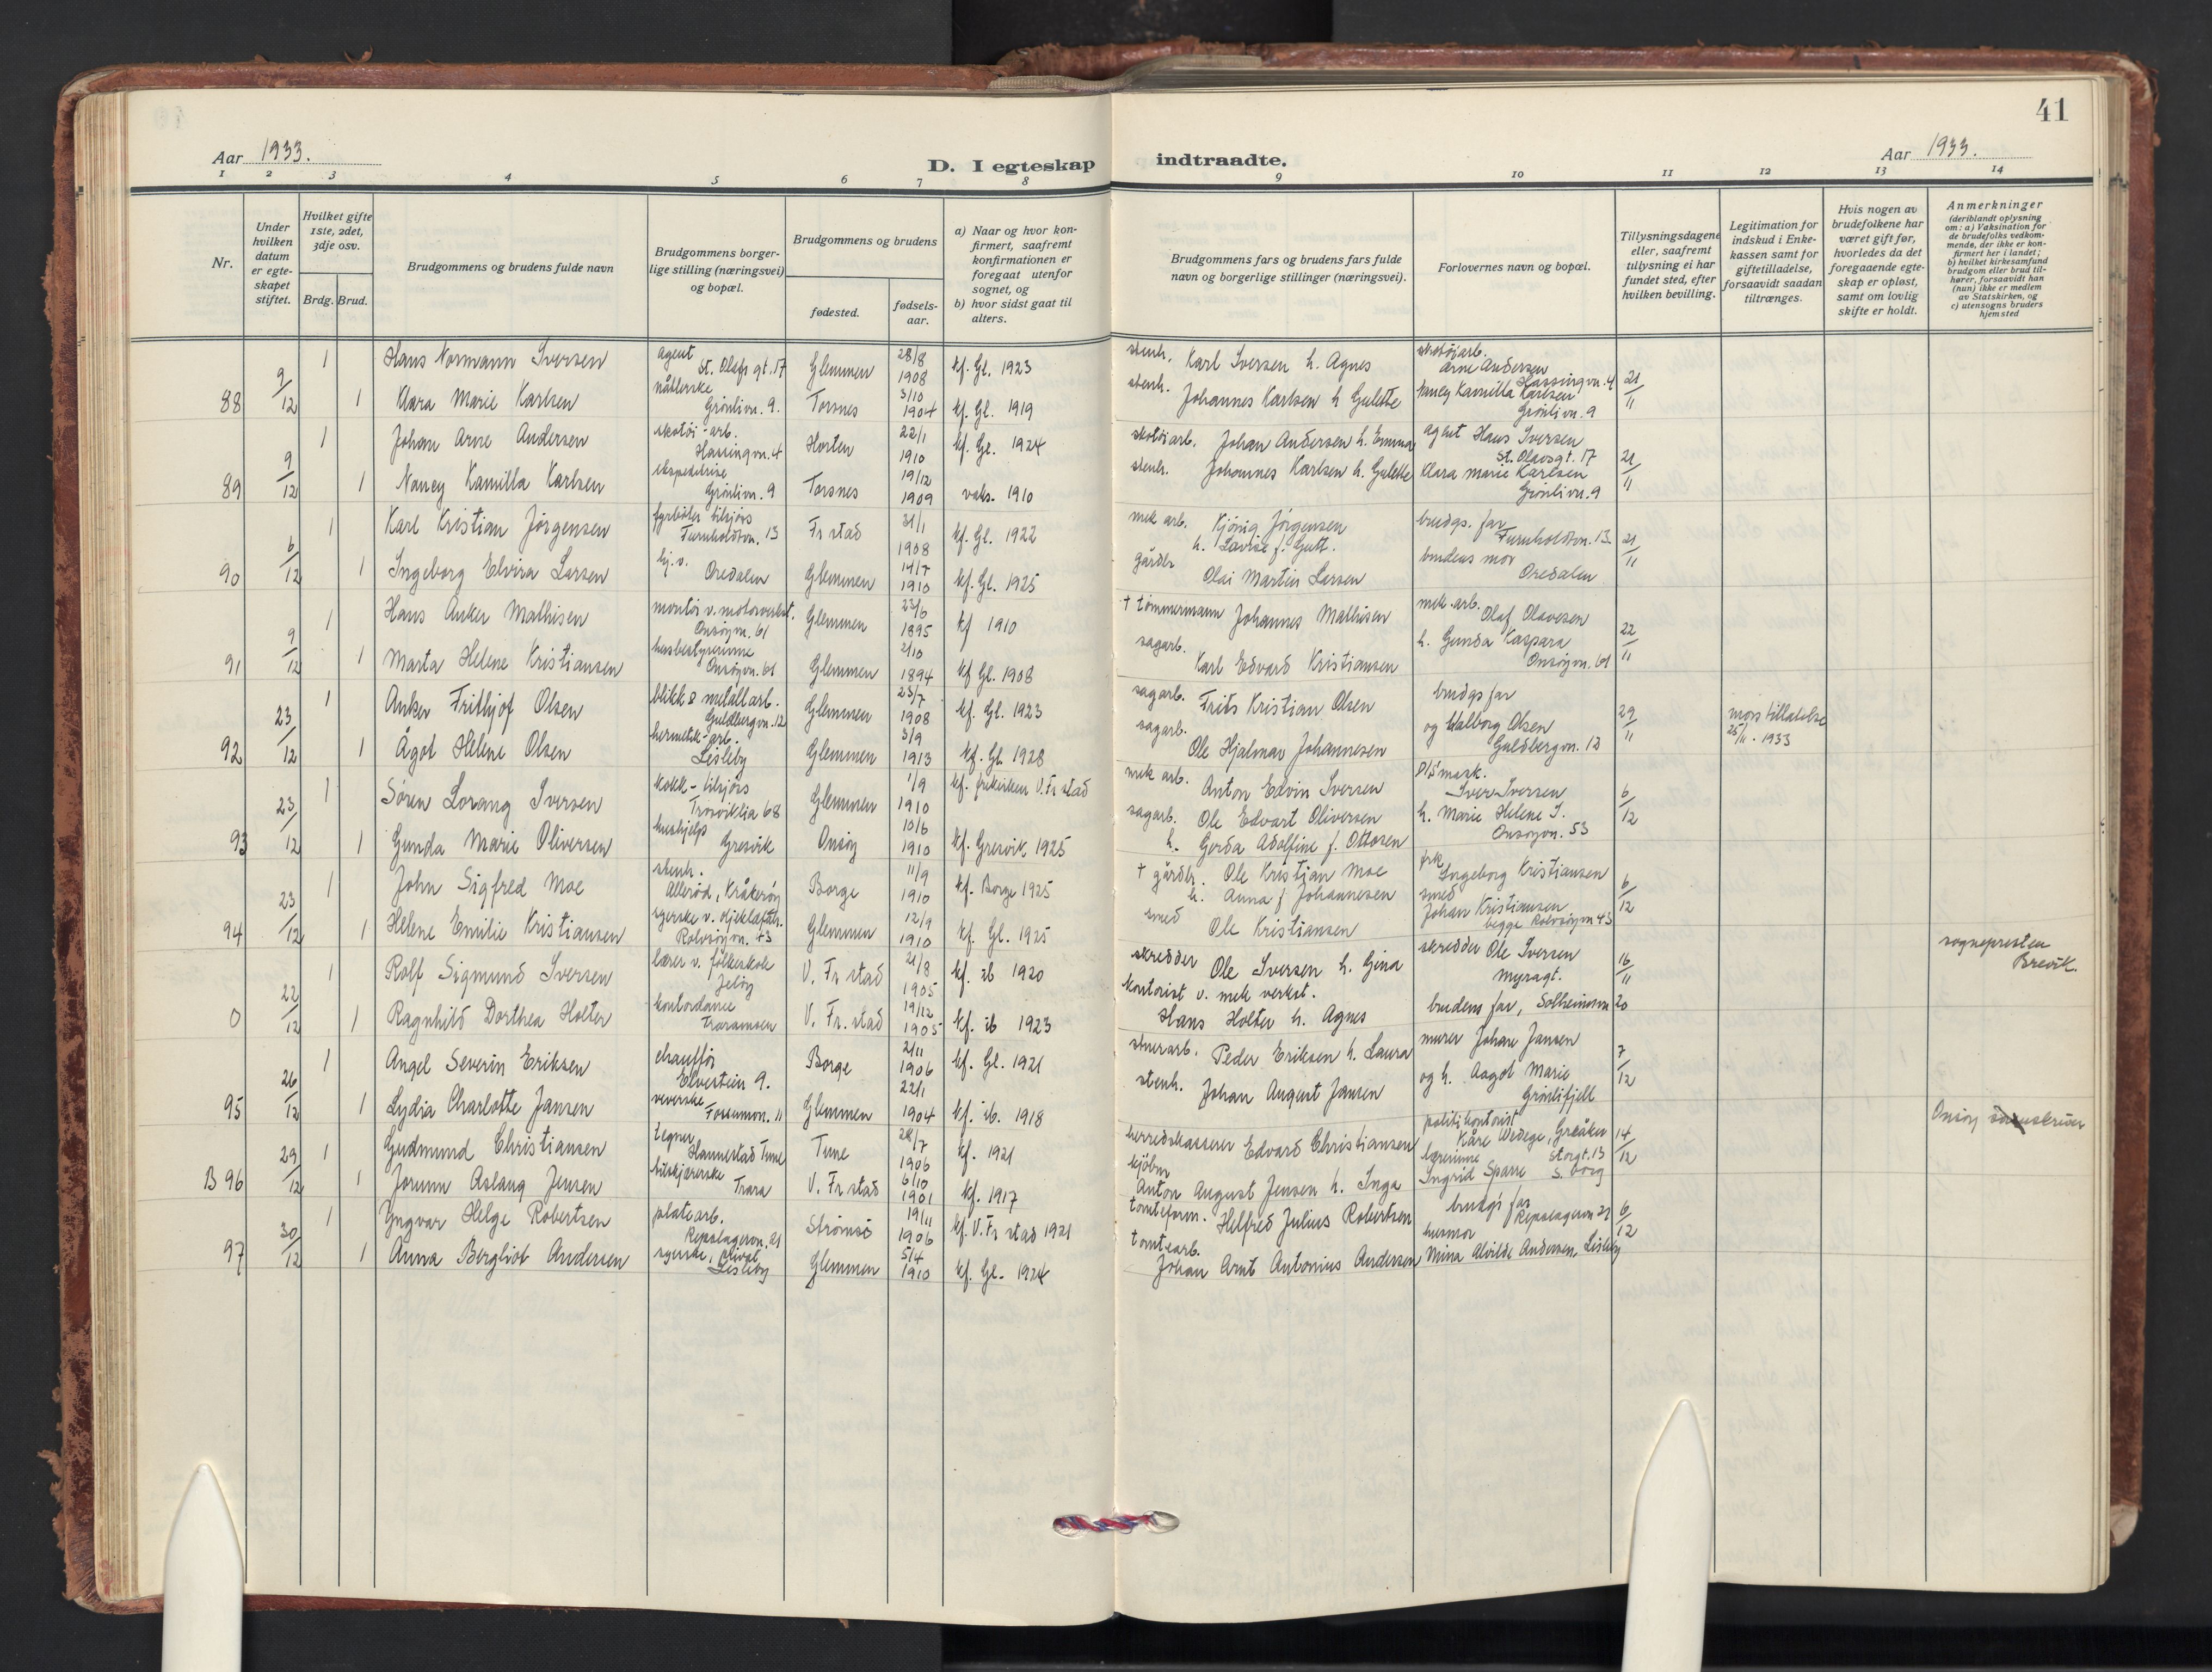 41
Aar 1933.
D. I egteskap
indtraadte.
Aar 1933.
1 2 3 4 5 6 7 8 9 10 11 12 13 14
Nr.
Under hvilken datum er egteskapet stiftet.
Hvilket gifte 1ste, 2det, 3dje osv.
Brdg. Brud.
Brudgommens og brudens fulde navn
Brudgommens borgerlige stilling (næringsvei) og bopæl.
Brudgommens og brudens
fødested.
fødselsaar.
a) Naar og hvor konfirmert, saafremt konfirmationen er foregaat utenfor sognet, og
b) hvor sidst gaat til alters.
Brudgommens fars og brudens fars fulde navn og borgerlige stillinger (næringsvei).
Forlovernes navn og bopæl.
Tillysningsdagene eller, saafremt tillysning ei har fundet sted, efter hvilken bevilling.
Legitimation for indskud i Enkekassen samt for giftetilladelse, forsaavidt saadan tiltrænges.
Hvis nogen av brudefolkene har været gift før, hvorledes da det foregaaende egteskap er opløst, samt om lovlig skifte er holdt.
Anmerkninger
(deriblandt oplysning om: a) Vaksination for de brudefolks vedkommende, der ikke er konfirmert her i landet; b) hvilket kirkesamfund brudgom eller brud tilhører, forsaavidt han (hun) ikke er medlem av Statskirken, og c) utensogns bruders hjemsted
1 Hans Normann Iversen agent St. Olafs gt. 17 Glemmen 28/8 1908 kf. Gl. 1923 stenh. Karl Iversen h. Agnes skotøiarb. Arne Andersen Hassingvn. 4
88 9/12 1 Klara Marie Karlsen nåtlerske Grønlivn. 9. Torsnes 3/10 1904 kf. Gl. 1919 stenh. Johannes Karlsen h Gulette Nancy Kamilla Karlsen Grønlivn. 9 21/11
1 Johan Arne Andersen skotøi-arb. Hassingvn. 4 Horten 22/1 1910 kf. Gl. 1924 skotøiarb. Johan Andersen h. Emma agent Hans Iversen St. Olavsgt. 17
89 9/12 1 Nancy Kamilla Karlsen ekspeditrise Grønlivn. 9 Torsnes 19/12 1909 vaks. 1910 stenh. Johannes Karlsen h. Gulette Klara Marie Karlsen Grønlivn. 9 21/11
1 Karl Kristian Jørgensen fyrbøter tilsjøs Furuholdtvn. 13 Fr stad 31/1 1908 kf. Gl. 1922 mek arb. Kjønig Jørgensen h. Lovise f. Gutt. brudgs. far Furuholdtvn. 13.
90 6/12 1 Ingeborg Elvira Larsen hj. v. Oredalen Glemmen 14/7 1910 kf. Gl. 1925 gårdbr Olai Martin Larsen brudens mor Oredalen 21/11
1 Hans Anker Mathisen montør v. motorverkst. Onsøyvn. 61 Glemmen 23/6 1895 kf 1910 † tømmermann Johannes Mathisen mek. arb. Olaf Olavesen
91 9/12 1 Marta Helene Kristiansen husbestyrerinne Onsøyvn. 61 Glemmen 2/10 1894 kf Gl. 1908 sagarb. Karl Edvard Kristiansen h. Gunda Kaspara Onsøyvn. 61 22/11
1 Anker Frithjof Olsen blikk & metallarb. Guldbergvn. 12 Glemmen 23/7 1908 kf. Gl. 1923 sagarb. Frits Kristian Olsen brudgs far
92 23/12 1 Ågot Helene Olsen hermetik-arb. Lisleby Glemmen 3/9 1913 kf. Gl. 1928 sagarb. Ole Hjalmar Johannesen og Valborg Olsen Guldbergvn. 12 29/11 mors tillatelse 25/11. 1933
1 Søren Lorang Iversen kokk - tilsjøs Trosviklia 68 Glemmen 1/9 1910 kf. frikirken V. Fr stad mek arb. Anton Edvin Iversen Iver Iversen
93 23/12 1 Gunda Marie Oliversen hushjelp Gresvik Onsøy 10/6 1910 kf. Gresvik 1925 sagarb. Ole Edvart Oliversen h. Gerda Adolfine f. Ottosen h. Marie Helene I. Onsøyvn. 53 6/12
1 John Sigfred Moe stenh. Allerød, Kråkerøy Borge 11/9 1910 kf. Borge 1925 † gårdbr. Ole Kristian Moe h. Anna f Johannesen frk Ingeborg Kristiansen
94 23/12 1 Helene Emilie Kristiansen syerske v. oljeklæfabr. Rolvsøyvn. 43 Glemmen 12/9 1910 kf. Gl. 1925 smed Ole Kristiansen smed Johan Kristiansen begge Rolvsøyvn 43 6/12
1 Rolf Sigmund Iversen lærer v. folkeskole Jeløy V. Fr stad 21/8 1905 kf. ib 1920 skredder Ole Iversen h. Gina skredder Ole Iversen Myragt. 16/11 sognepresten Brevik.
0 22/12 1 Ragnhild Dorthea Holter kontordame Traraveien V. Fr. stad 19/12 1905 kf. ib 1923 kontorist v. mek verkst. Hans Holter h. Agnes brudens far, Solheimvn 20
1 Angel Severin Eriksen chauffør Elvestien 9. Borge 2/11 1906 kf. Gl. 1921 stuerarb. Peder Eriksen h. Laura murer Johan Jansen
95 26/12 1 Lydia Charlotte Jansen veverske Fossumvn. 11 Glemmen 22/1 1904 kf. ib. 1918 stenh. Johan August Jansen og h. Aagot Marie Grønlifjell 7/12
1 Gudmund Christiansen tegner Hannestad Tune Tune 28/7 1906 kf. 1921 herredskasserer Edvard Christiansen politikontorist Kåre Wedege, Greåker 14/12 Onsøy sorenskriver
B 96 29/12 1 Jorunn Aslaug Jensen tilskjærerske Trara V. Fr stad 6/10 1901 kf. 1917 kjøbm Anton August Jensen h. Inga lærerinne Ingrid Sparre Storgt. 13 S. borg
1 Yngvar Helge Robertsen platearb. Repslagervn. 21 Strømsø 19/11 1906 kf. V. Fr stad 1921 tomteform. Helfred Julius Robertsen brudgs far Repslagervn 21 6/12
97 30/12 1 Anna Bergliot Andersen syerske, privat Lisleby Glemmen 5/4 1910 kf. Gl. 1924 tomtearb. Johan Arnt Antonius Andersen husmor Mina Alvilde Andersen Lisleby